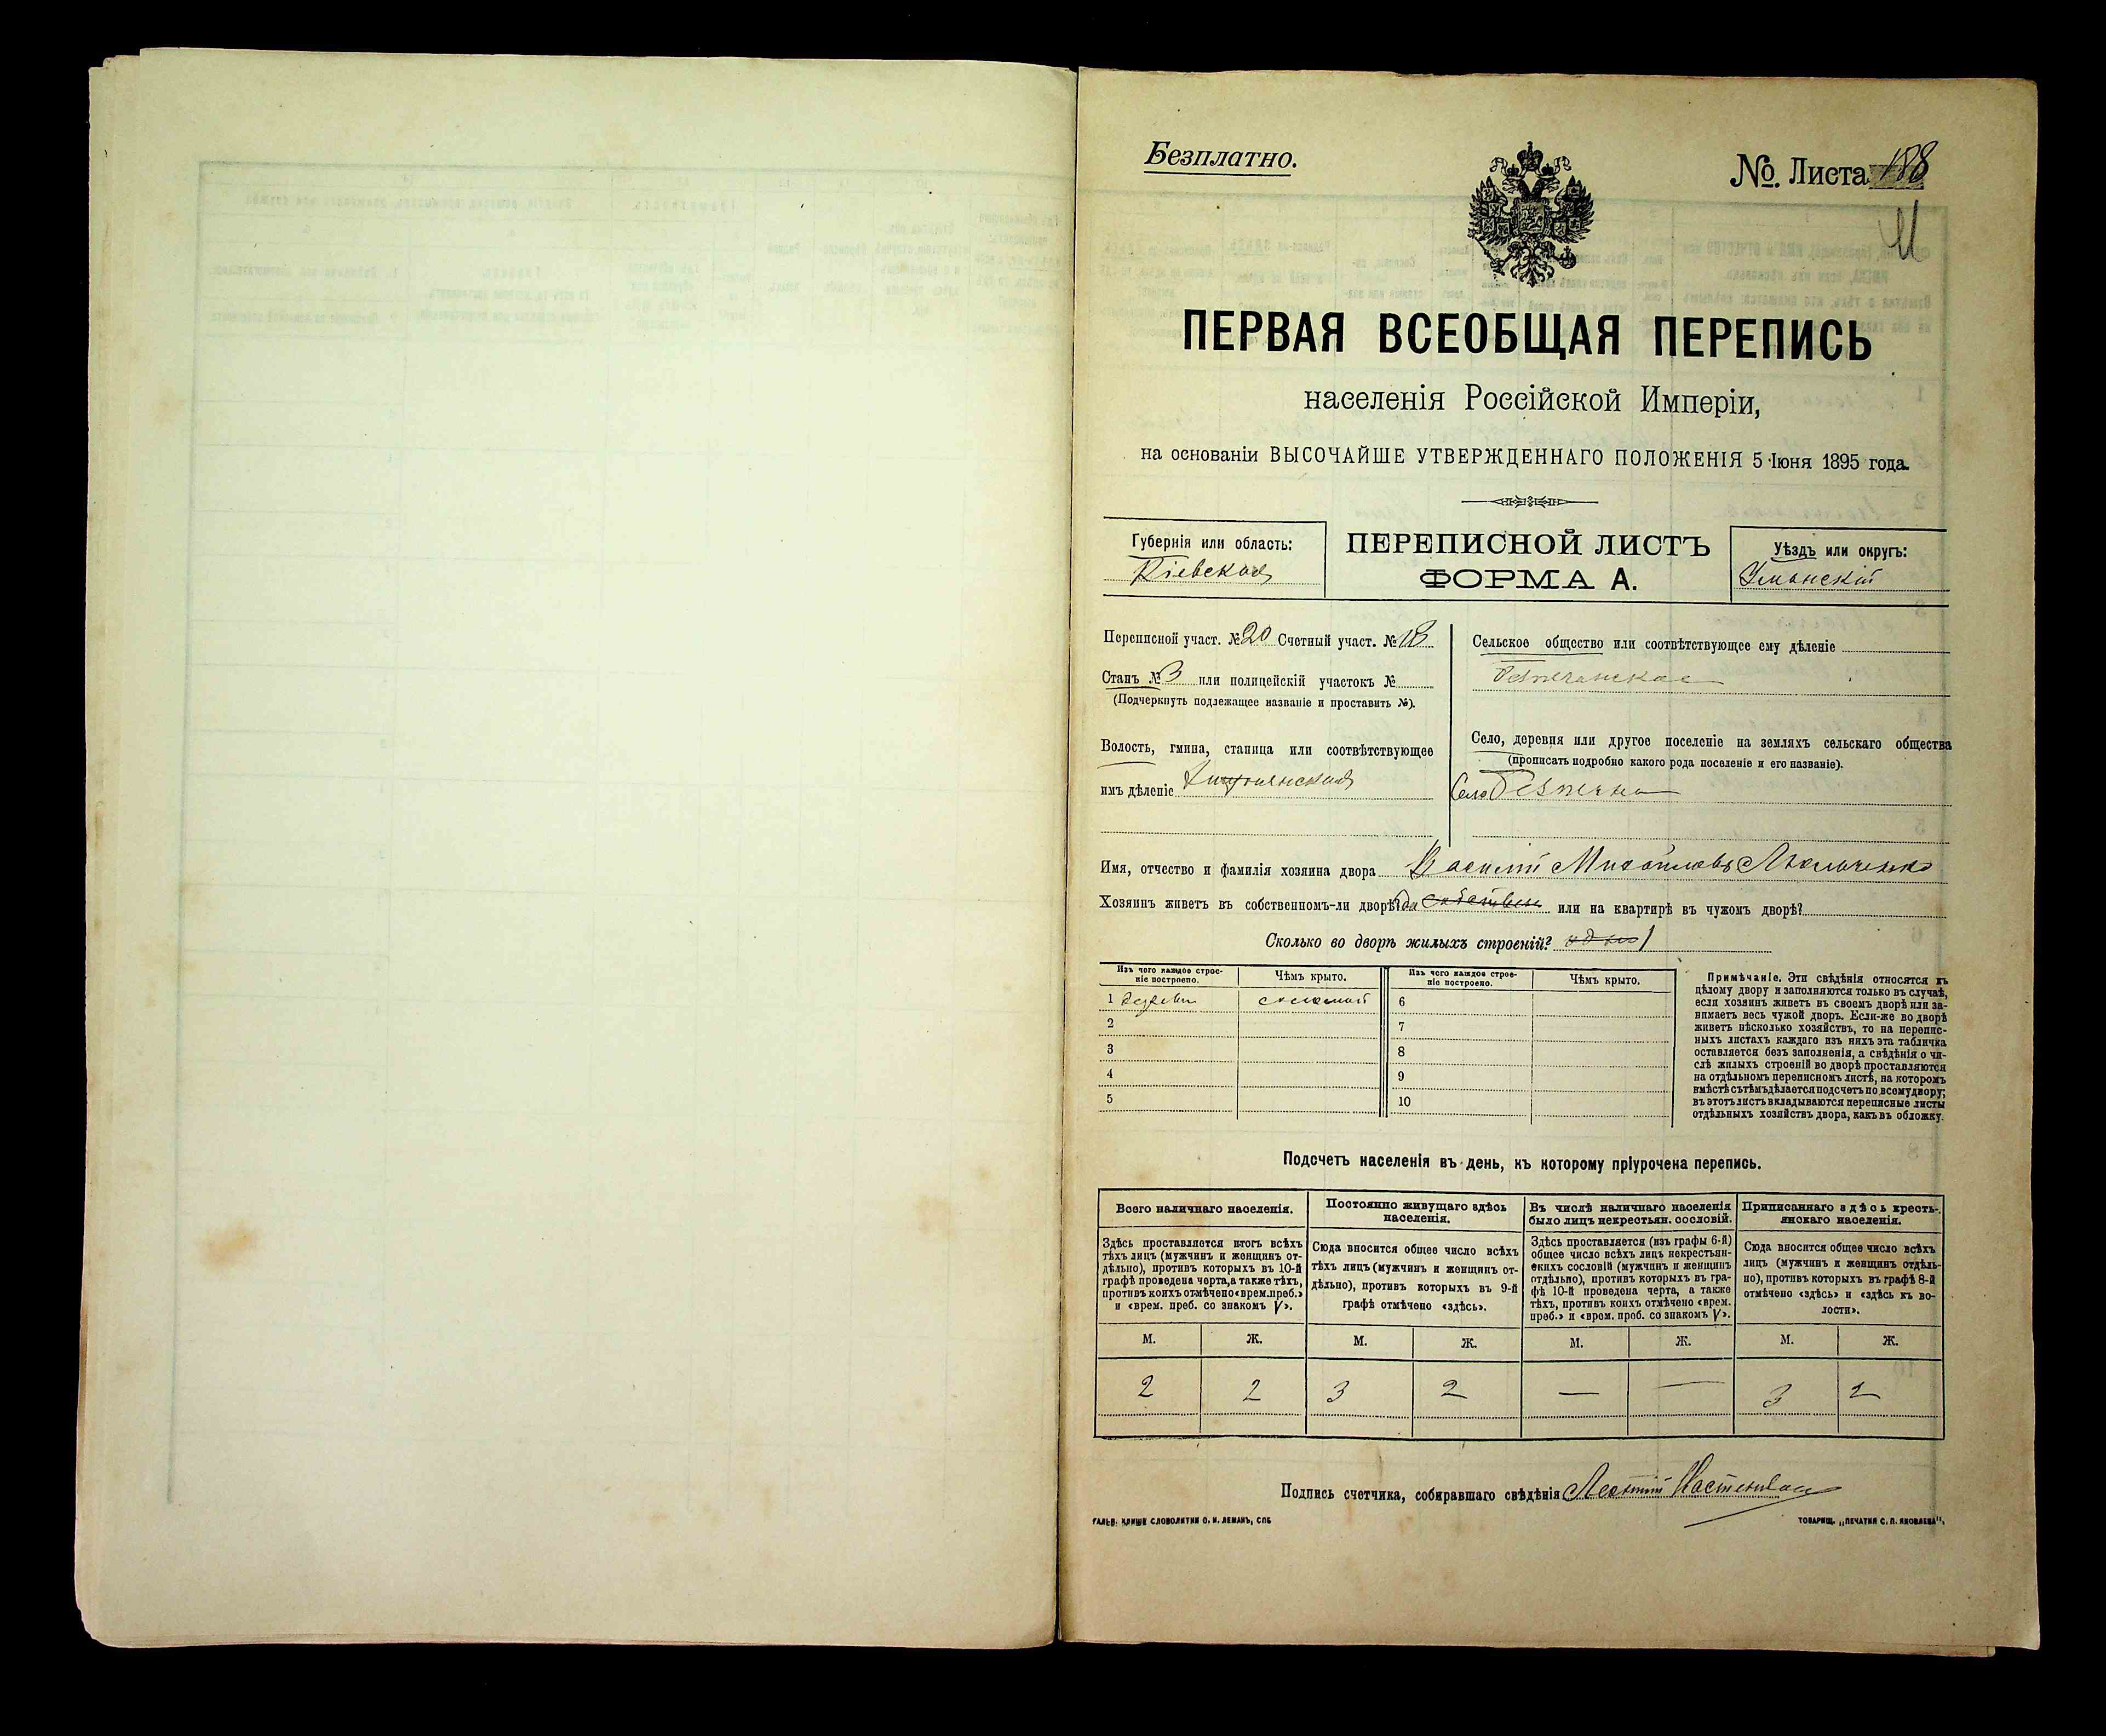 Безплатно.
№. Листа 188
ПЕРВАЯ ВСЕОБЩАЯ ПЕРЕПИСЬ
населенія Россійской Имперіи,
на основаніи ВЫСОЧАЙШЕ УТВЕРЖДЕННАГО ПОЛОЖЕНІЯ 5 Іюня 1895 года.
Губернія или область:
Кіевская
ПЕРЕПИСНОЙ ЛИСТЪ
ФОРМА А.
Уѣздъ или округъ:
Уманскій
Переписной участ. № 20 Счетный участ. № 18
Станъ № 3 или полицейскій участокъ №
(Подчеркнуть подлежащее названіе и проставить №).
Волость, гмина, станица или соотвѣтствующее
имъ дѣленіе
Сельское общество или соотвѣтствующее ему дѣленіе
Село, деревня или другое поселеніе на земляхъ сельскаго общества
(прописать подробно какого рода поселеніе и его названіе).
Село
Имя, отчество и фамилія хозяина двора Василій Михайловъ
Хозяинъ живетъ въ собственномъ-ли дворѣ? да или на квартирѣ въ чужомъ дворѣ?
Сколько во дворѣ жилыхъ строеній? одно 1
Изъ чего каждое строе-
ніе построено.
Чѣмъ крыто.
Изъ чего каждое строе-
ніе построено.
Чѣмъ крыто.
1 соломой 6
2 7
3 8
4 9
5 10
Примѣчаніе. Эти свѣдѣнія относятся къ
цѣлому двору и заполняются только въ случаѣ,
если хозяинъ живетъ въ своемъ дворѣ или за-
нимаетъ весь чужой дворъ. Если-же во дворѣ
живетъ нѣсколько хозяйствъ, то на перепис-
ныхъ листахъ каждаго изъ нихъ эта табличка
оставляется безъ заполненія, а свѣдѣнія о чи-
слѣ жилыхъ строеній во дворѣ проставляются
на отдѣльномъ переписномъ листѣ, на которомъ
вмѣстѣ съ тѣмъ дѣлается подсчетъ по всему двору;
въ этотъ листъ вкладываются переписные листы
отдѣльныхъ хозяйствъ двора, какъ въ обложку.
Подсчетъ населенія въ день, къ которому пріурочена перепись.
Всего наличнаго населенія.
Здѣсь проставляется итогъ всѣхъ
тѣхъ лицъ (мужчинъ и женщинъ от-
дѣльно), противъ которыхъ въ 10-й
графѣ проведена черта, а также тѣхъ,
противъ коихъ отмѣчено «врем. преб.»
и «врем. преб. со знакомъ V».
Постоянно живущаго здѣсь
населенія.
Сюда вносится общее число всѣхъ
тѣхъ лицъ (мужчинъ и женщинъ от-
дѣльно), противъ которыхъ въ 9-й
графѣ отмѣчено «здѣсь».
Въ числѣ наличнаго населенія
было лицъ некрестьян. сословій.
Здѣсь проставляется (изъ графы 6-й)
общее число всѣхъ лицъ некрестьян-
скихъ сословій (мужчинъ и женщинъ
отдѣльно), противъ которыхъ въ гра-
фѣ 10-й проведена черта, а также
тѣхъ, противъ коихъ отмѣчено «врем.
преб.» и «врем. преб. со знакомъ V».
Приписаннаго здѣсь кресть-
янскаго населенія.
Сюда вносится общее число всѣхъ
лицъ (мужчинъ и женщинъ отдѣль-
но), противъ которыхъ въ графѣ 8-й
отмѣчено «здѣсь» и «здѣсь къ во-
лости».
М. Ж. М. Ж. М. Ж. М. Ж.
2 2 3 2 — — 3 2
Подпись счетчика, собиравшаго свѣдѣнія
ГАЛЬВ. КЛИШЕ СЛОВОЛИТНИ О. И. ЛЕМАНЪ, СПБ
ТОВАРИЩ. „ПЕЧАТНЯ С. П. ЯКОВЛЕВА".